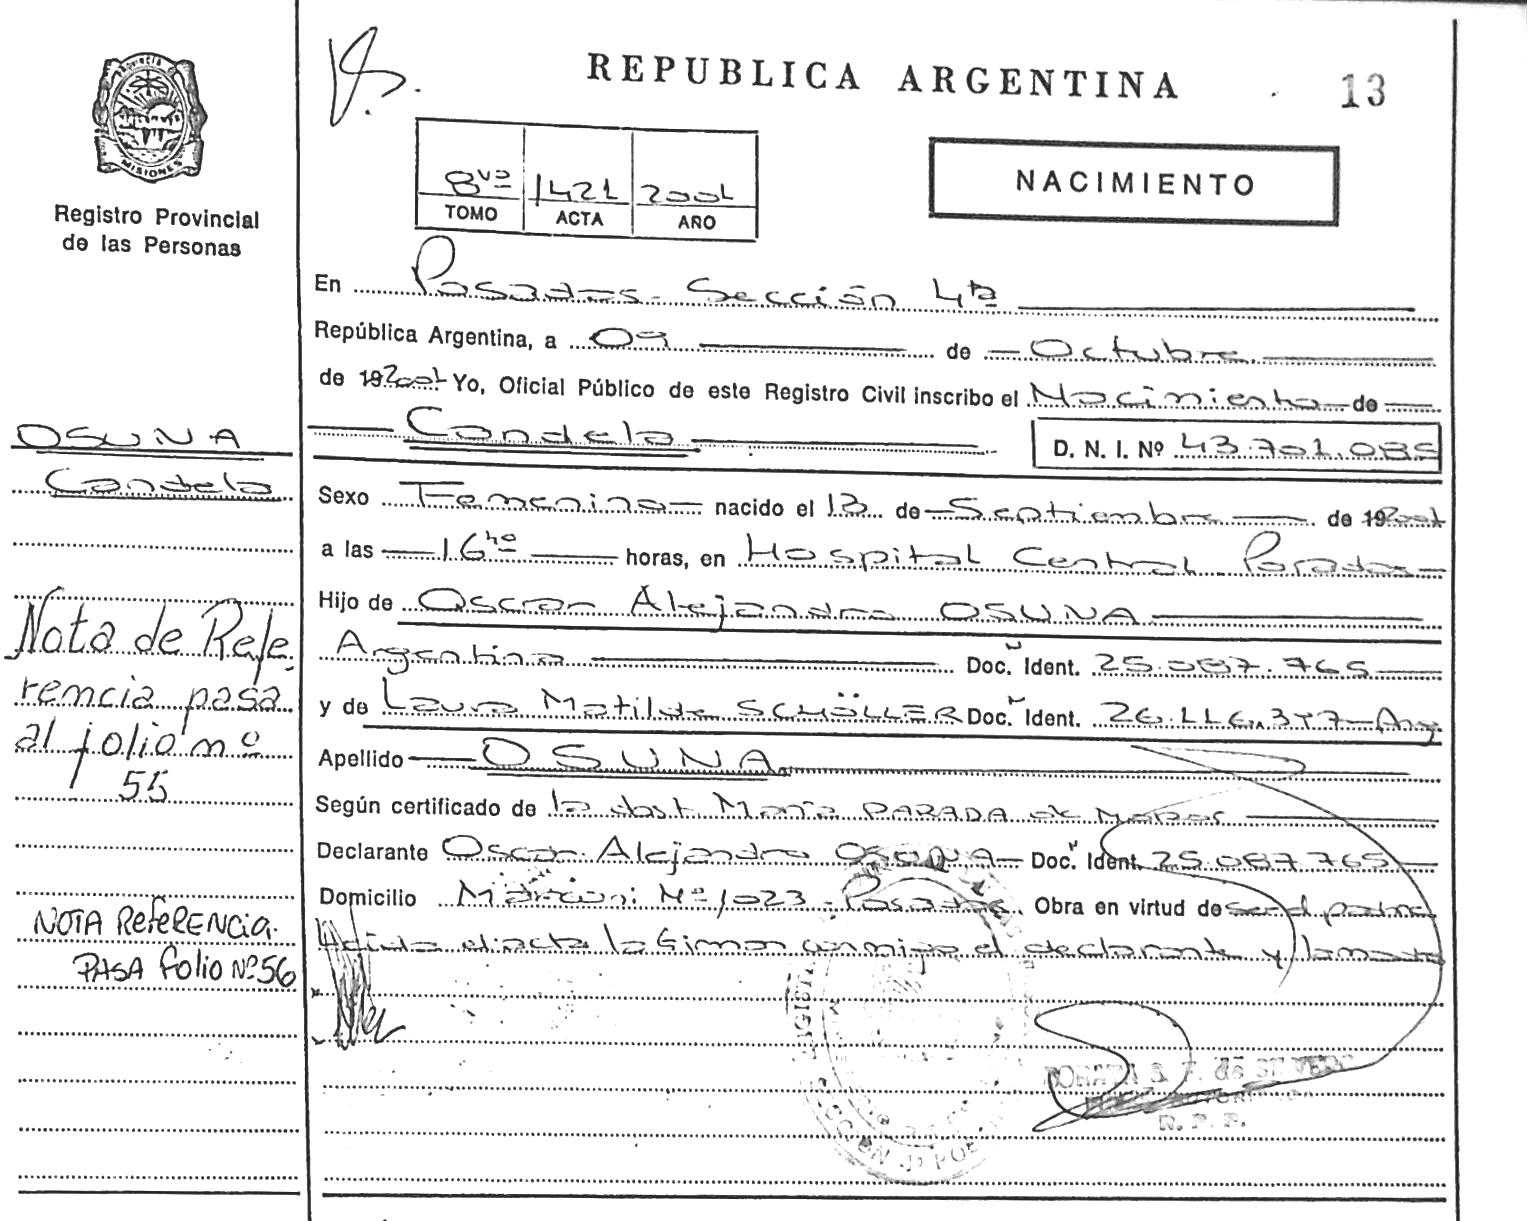 PROVINCIA
MISIONES
Registro Provincial
de las Personas
OSUNA
Candela
Nota de Refe
rencia pasa
al folio nº
55
NOTA ReferENCIA.
PASA folio Nº 56
REPUBLICA ARGENTINA
13
8vo 1421 2001
TOMO ACTA AÑO
NACIMIENTO
En Posadas - Sección 4ta
República Argentina, a 09 de Octubre
de 192001 Yo, Oficial Público de este Registro Civil inscribo el Nacimiento de
Candela D. N. I. Nº 43.701.085
Sexo Femenino nacido el 13 de Septiembre de 192001
a las 16 horas, en Hospital Central Posadas
Hijo de Oscar Alejandro OSUNA
Argentina Doc. Ident. 25.087.765
y de Laura Matilde SCHÖLLER Doc. Ident. 26.116.347 Arg
Apellido OSUNA
Según certificado de la obst. María PARADA de
Declarante Oscar Alejandro OSUNA Doc. Ident. 25.087.765
Domicilio Marconi Nº 1023 - Posadas. Obra en virtud de ser el padre
Leída el acta la firman conmigo el declarante y la madre
R. P. P.